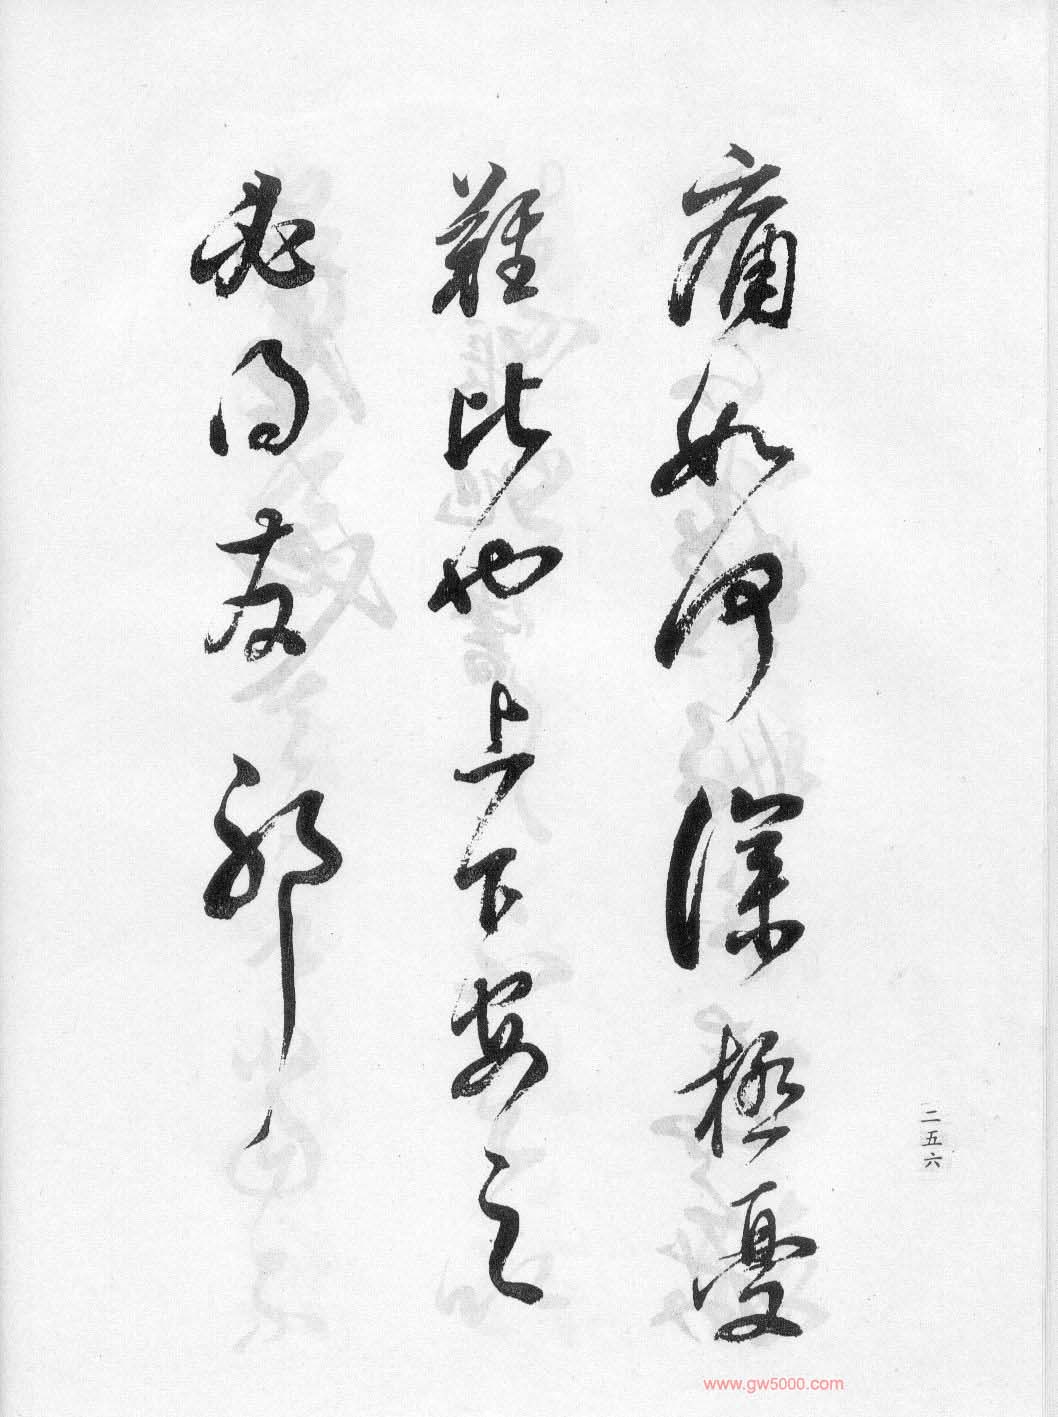 痛如何深極憂
難比也上下安之
得友耶
二五六
www.gw5000.com